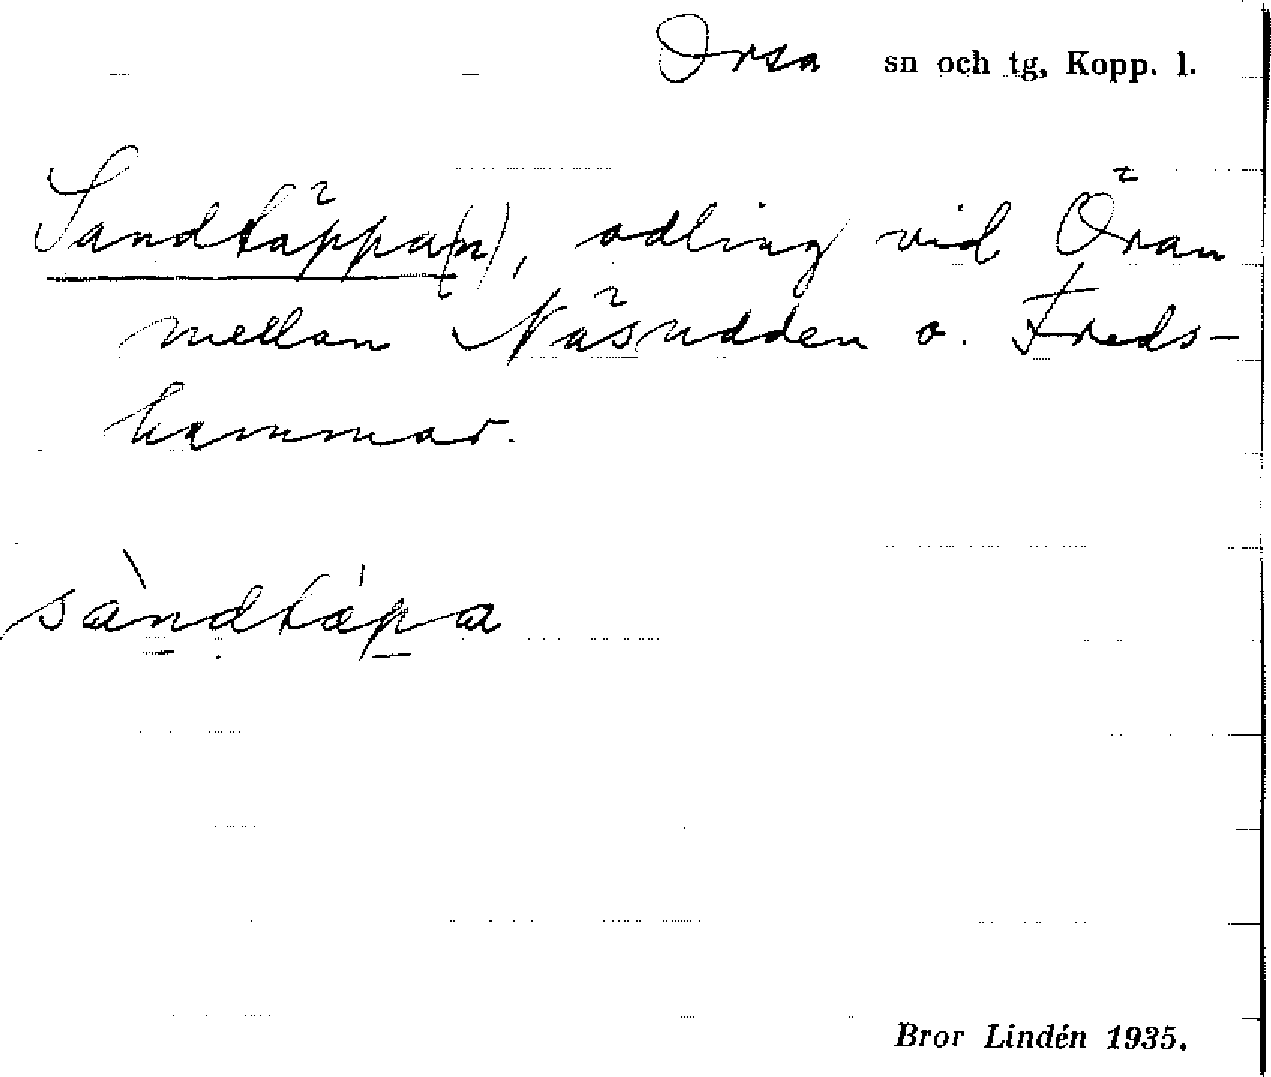 Orsa sn och tg, Kopp. l.
Sandtäppa(n), odling vid Öran
mellan Näsudden o. Freds-
hammar.
sàndtä́pa
Bror Lindén 1935.